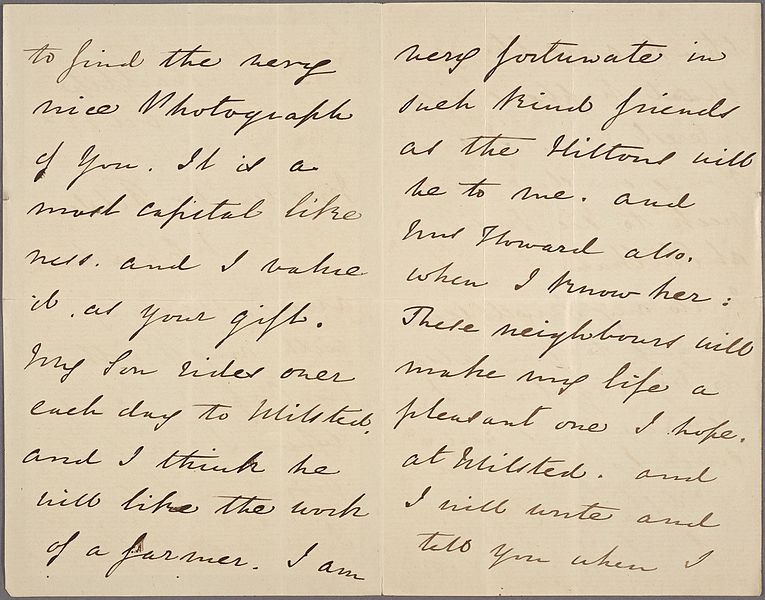 to find the very
nice Photograph
of You. It is a
most capital like
ness. and I value
it. as your gift.
My Son rides over
each day to Milsted.
and I think he
will like the work
of a farmer. I am
very fortunate in
such kind friends
as the Hiltons will
be to me. and
Mrs Howard also.
when I know her:
These neighbours will
make my life a
pleasant one I hope.
at Milsted. and
I will write and
tell you when I